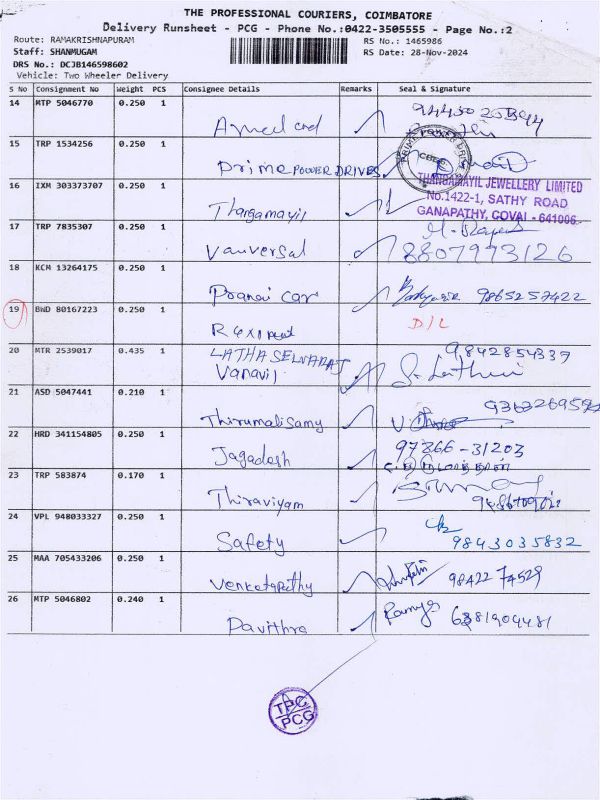 THE PROFESSIONAL COURIERS, COIMBATORE
Delivery Runsheet - PCG - Phone No.:0422-3505555 - Page No.:2
Route: RAMAKRISHNAPURAM RS No.: 1465986
Staff: SHANMUGAM RS Date: 28-Nov-2024
DRS No.: DCJB146598602
Vehicle: Two Wheeler Delivery
S No Consignment No Weight PCS Consignee Details Remarks Seal & Signature
14 MTP 5046770 0.250 1
15 TRP 1534256 0.250 1 Prime POWER DRIVES
PRIME POWER DRIVES
16 IXM 303373707 0.250 1 Thangamayil
THANGAMAYIL JEWELLERY LIMITED
No.1422-1, SATHY ROAD
GANAPATHY, COVAI - 641006
17 TRP 7835307 0.250 1 Vauversal 8807993126
18 KCM 13264175 0.250 1 Pranai car 9865257422
19 BWD 80167223 0.250 1 D/L
20 MTR 2539017 0.435 1 LATHA SELVARAJ 9842854337
Vanavil
21 ASD 5047441 0.210 1 Thirumalisamy
22 HRD 341154805 0.250 1 Jagadesh 97866-31203
23 TRP 583874 0.170 1 Thiraviyam
24 VPL 948033327 0.250 1 Safety 9843035832
25 MAA 705433206 0.250 1 Venketapathy 98422 74529
26 MTP 5046802 0.240 1 Pavithra Ramya 6381909481
TPC
PCG